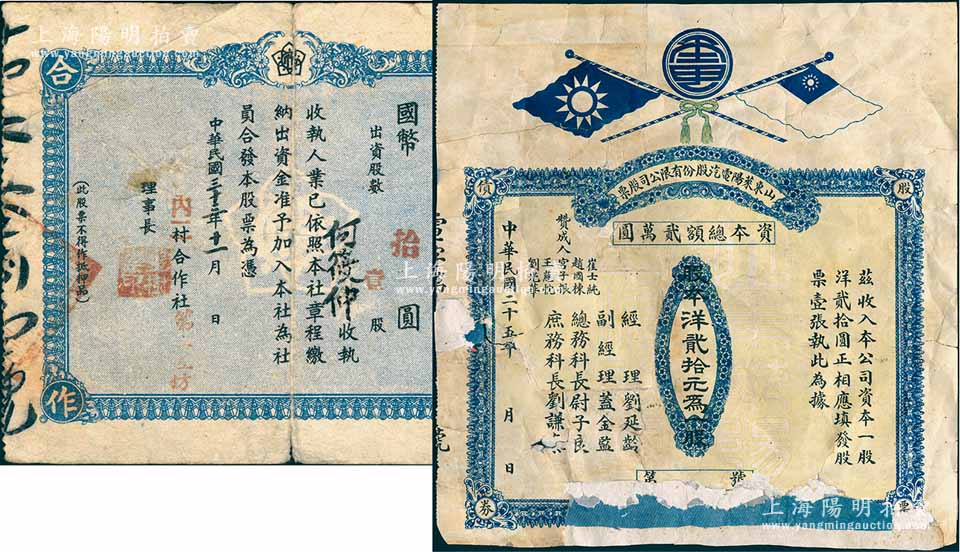 上海陽明拍賣
www.yangmingauction.com
合
作
國幣 拾 圓
出資股數 壹 股
何筱仲 收執
收執人業已依照本社章程繳
納出資金准予加入本社為社
員合發本股票為憑
中華民國三十三年十一月 日
內 村合作社
理事長
(此股票不得作抵押品)
山東萊陽電汽股份有限公司股票
股
債
票
券
資本總額貳萬圓
茲收入本公司資本一股
洋貳拾圓正相應填發股
票壹張執此為據
股本洋貳拾元為一股
經理劉延齡
副經理蓋金監
總務科長尉子良
庶務科長劉謙
崔士純
趙國棟
贊成人宮子振
中華民國二十五年 月 日
第 號
上海陽明拍賣
www.yangmingauction.com